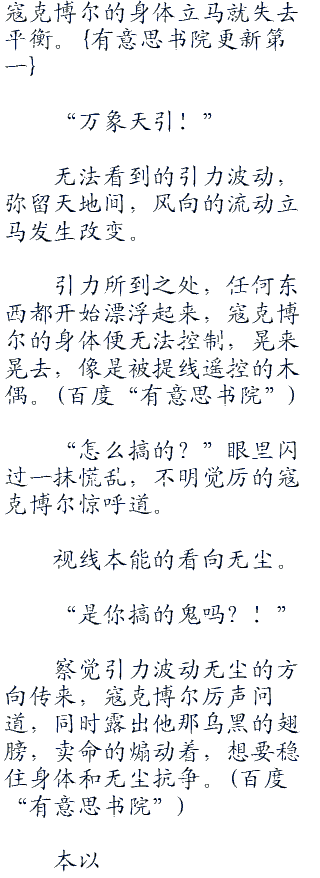 寇克博尔的身体立马就失去
平衡。{有意思书院更新第
一}
“万象天引！”
无法看到的引力波动，
弥留天地间，风向的流动立
马发生改变。
引力所到之处，任何东
西都开始漂浮起来，寇克博
尔的身体便无法控制，晃来
晃去，像是被提线遥控的木
偶。(百度“有意思书院”)
“怎么搞的？”眼里闪
过一抹慌乱，不明觉厉的寇
克博尔惊呼道。
视线本能的看向无尘。
“是你搞的鬼吗？！”
察觉引力波动无尘的方
向传来，寇克博尔厉声问
道，同时露出他那乌黑的翅
膀，卖命的煽动着，想要稳
住身体和无尘抗争。(百度
“有意思书院”)
本以